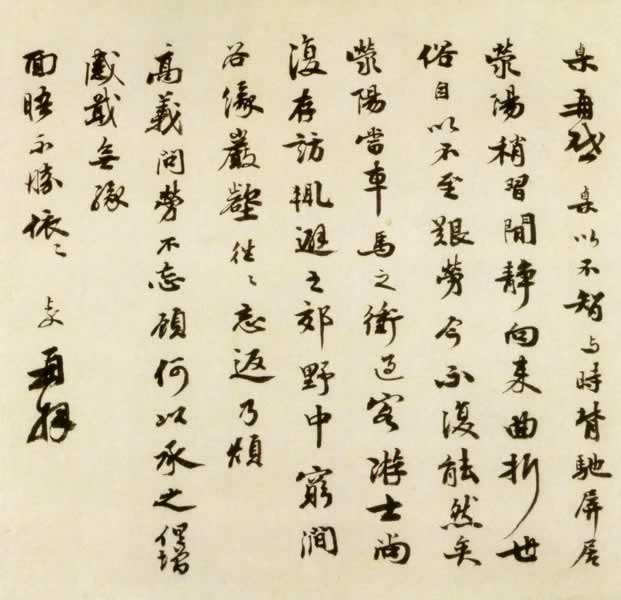 再啓 以不智与時背馳屏居
滎陽稍習閒靜向来曲折世
俗自以不至艱勞今不復能然矣
滎陽當車馬之衝過客游士尚
復存訪輒避之郊野中窮澗
谷緣巖壑往々忘返乃煩
高義問勞不忘顧何以承之但增
感戢無緣
面晤不勝依々 再拜